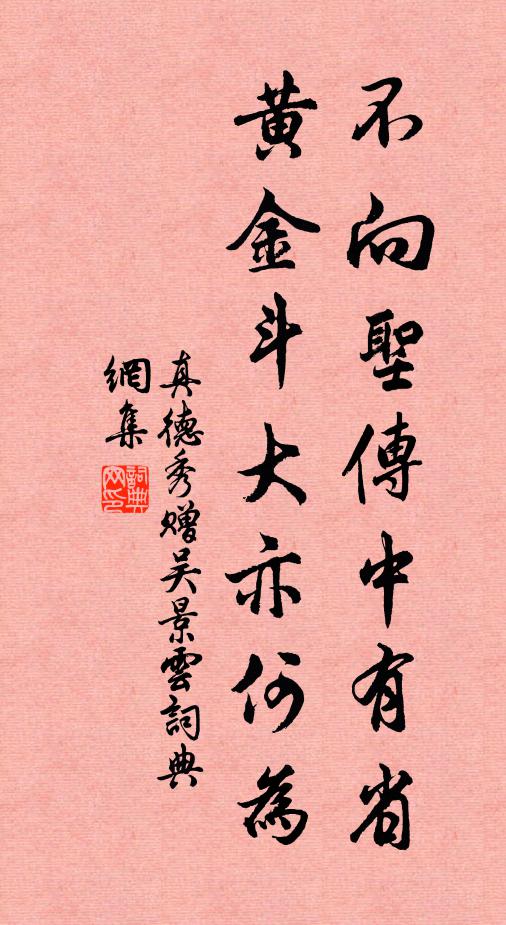 不向聖傳中有省
黃金斗大亦何為
真德秀贈吳景雲詞典
網集
詞典
網印